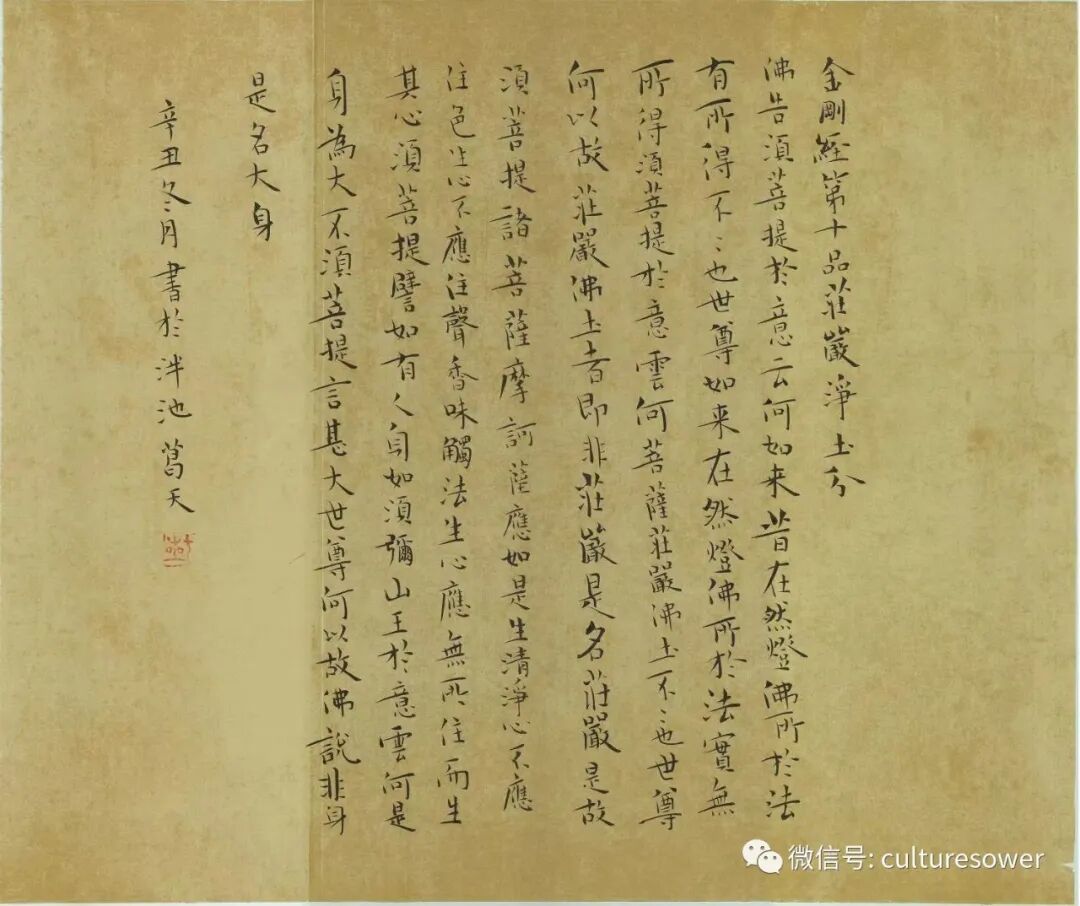 金剛經第十品莊嚴淨土分
佛告須菩提於意云何如来昔在然燈佛所於法
有所得不不也世尊如来在然燈佛所於法實無
所得須菩提於意雲何菩薩莊嚴佛土不不也世尊
何以故莊嚴佛土者即非莊嚴是名莊嚴是故
須菩提諸菩薩摩訶薩應如是生清淨心不應
住色生心不應住聲香味觸法生心應無所住而生
其心須菩提譬如有人身如須彌山王於意雲何是
身為大不須菩提言甚大世尊何以故佛說非身
是名大身
辛丑冬月書於泮池葛天
微信号: culturesower